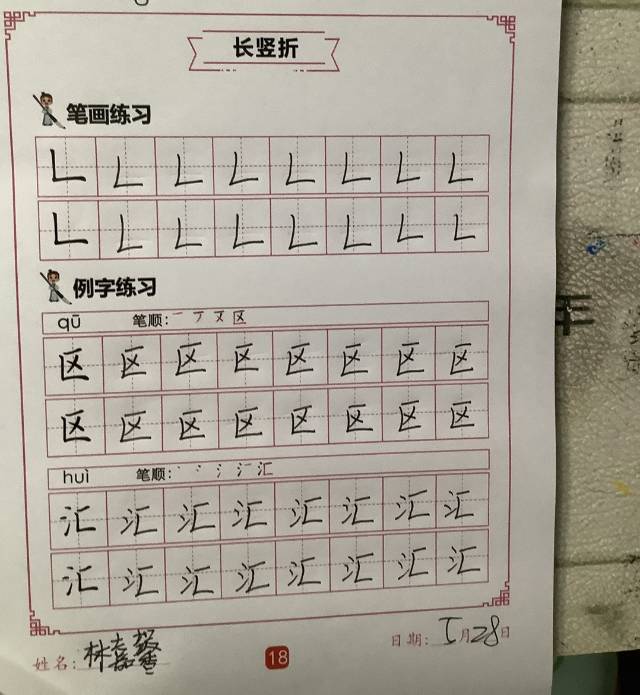 长竖折
笔画练习
𠃊 𠃊 𠃊 𠃊 𠃊 𠃊 𠃊 𠃊
𠃊 𠃊 𠃊 𠃊 𠃊 𠃊 𠃊 𠃊
例字练习
qū 笔顺: 区
区 区 区 区 区 区 区 区
区 区 区 区 区 区 区 区
huì 笔顺: 汇
汇 汇 汇 汇 汇 汇 汇 汇
汇 汇 汇 汇 汇 汇 汇 汇
姓名: 林嘉馨 18 日期: 5月28日